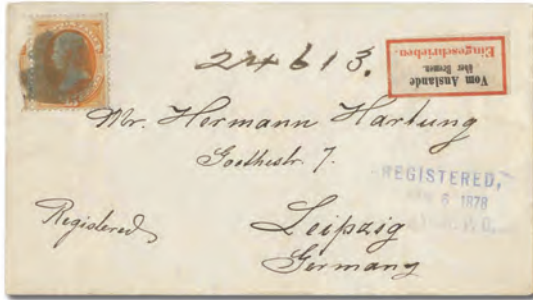 24613.
Vom Auslande
über Bremen.
Eingeschrieben.
Mr. Hermann Hartung
Goethestr. 7.
REGISTERED,
6 1878
Registered
Leipzig
Germany